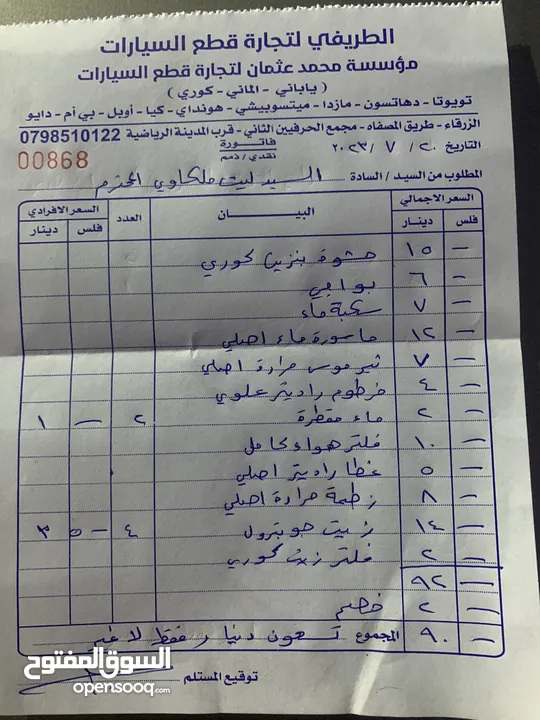 الطريفي لتجارة قطع السيارات
مؤسسة محمد عثمان لتجارة قطع السيارات
( ياباني - الماني - كوري )
تويوتا - دهاتسون - مازدا - ميتسوبيشي - هونداي - كيا - أوبل - بي أم - دايو
الزرقاء - طريق المصفاه - مجمع الحرفيين الثاني - قرب المدينة الرياضية 0798510122
التاريخ ٢٠ / ٧ / ٢٠٢٣م فاتورة نقدي / ذمم 00868
المطلوب من السيد / السادة : السيد ليث ملكاوي المحترم
السعر الاجمالي البيــــان العدد السعر الافرادي
فلس دينار فلس دينار
— ١٥ حشوة بنزين كوري
— ٦ بواجي
— ٧ سكبة ماء
— ١٢ ماسورة ماء اصلي
— ٧ ثيرموس حرارة اصلي
— ٤ خرطوم راديتر علوي
— ٢ ماء مقطرة ٢ — ١
— ١٠ فلتر هواء كامل
— ٥ غطا راديتر اصلي
— ٨ حرارة اصلي
— ١٤ زيت جوبترول ٤ ٥٠ ٣
— ٢ فلتر زيت كوري
— ٩٢
— ٢ خصم
— ٩٠ المجموع تسعون دينار فقط لا غير
توقيع المستلم
السوق المفتوح
opensooq.com